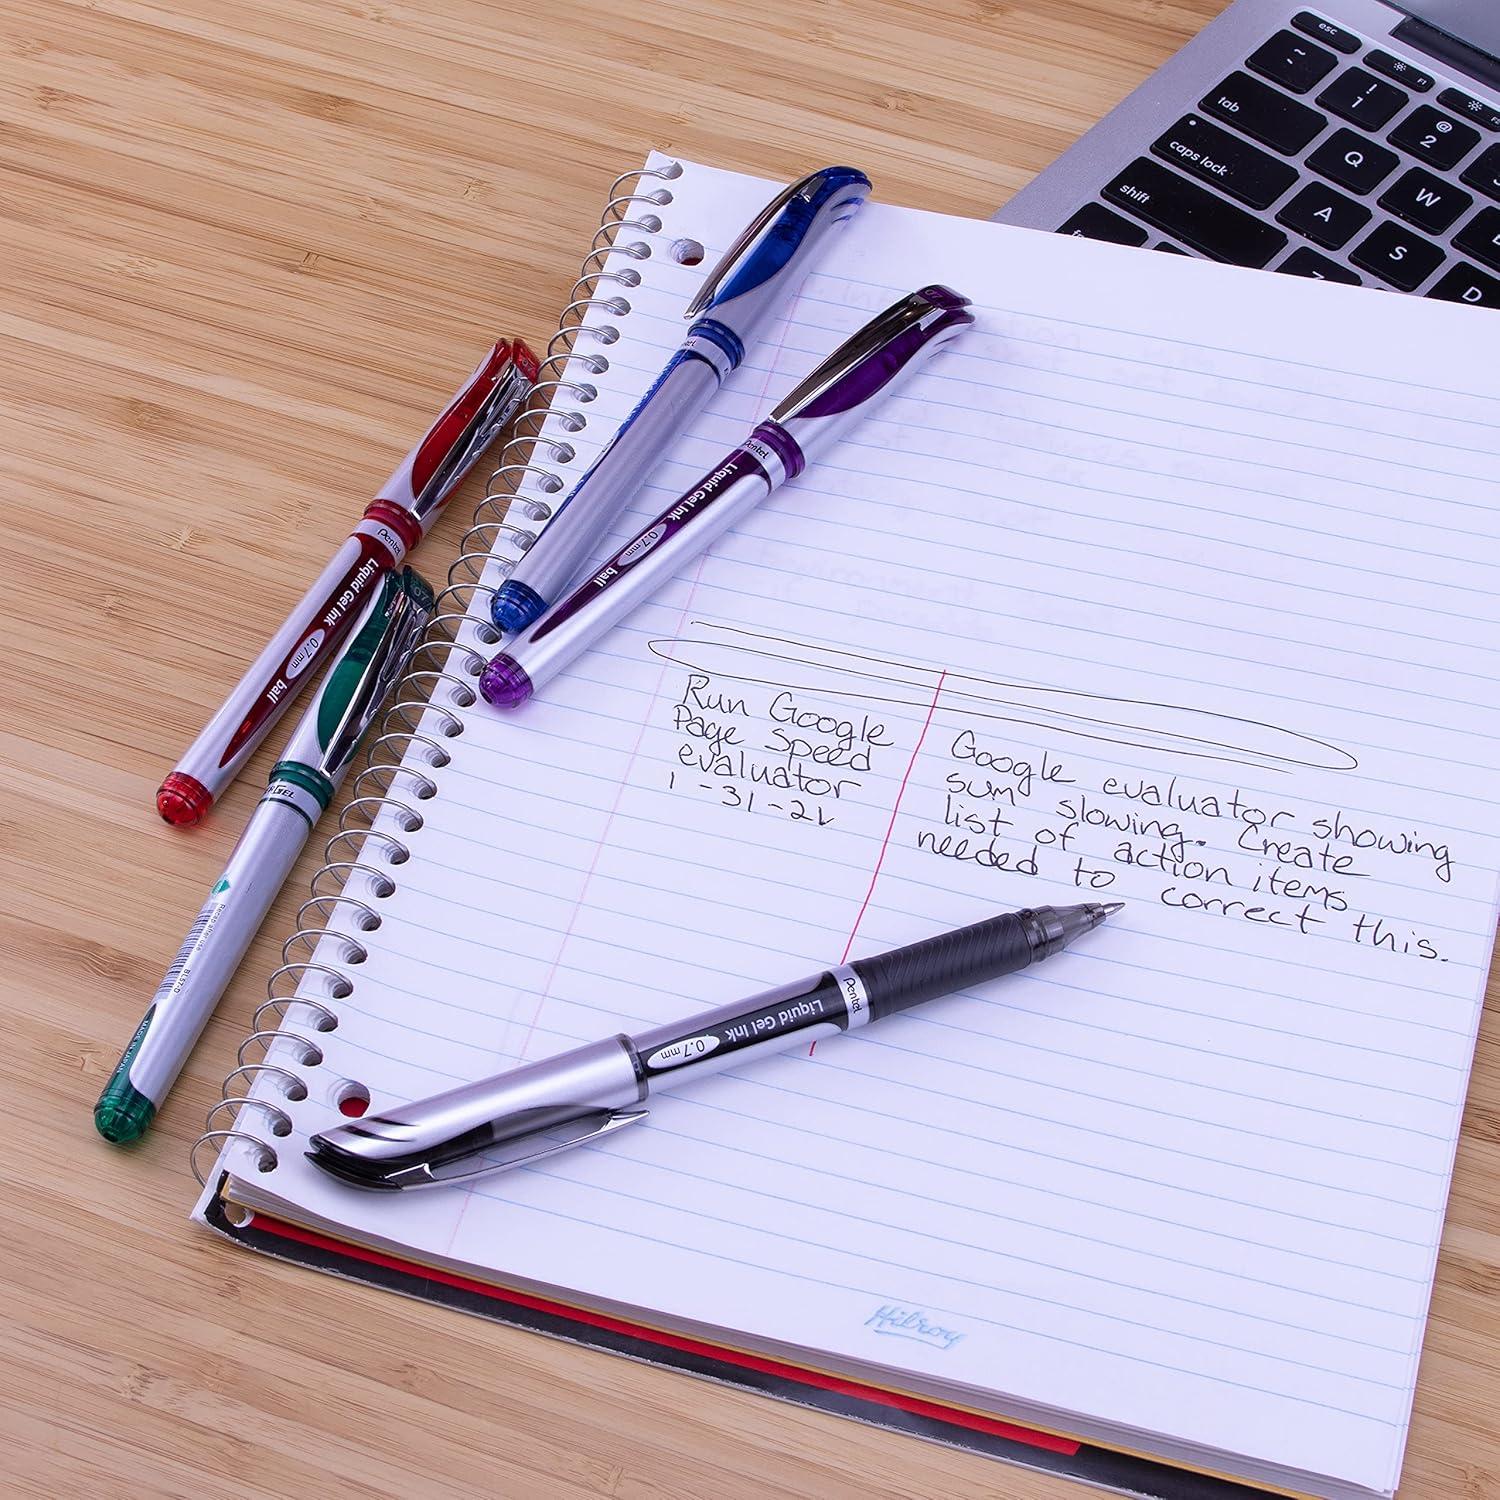 esc
F1
F2
~
!
1
@
2
tab
Q
W
caps lock
A
S
D
shift
Pentel
Liquid Gel Ink
0.7mm
ball
Pentel
Liquid Gel Ink
0.7mm
ball
BL57-D
MADE IN JAPAN
Run Google
Page Speed
evaluator
1-31-21
Google evaluator showing
sum slowing. Create
list of action items
needed to correct this.
Pentel
Liquid Gel Ink
0.7mm
Hilroy